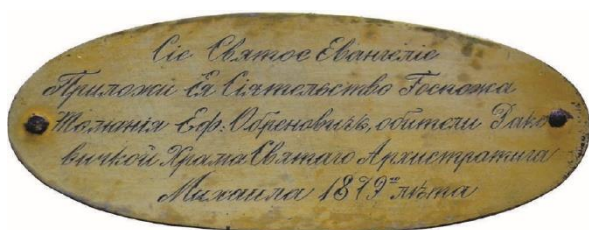 Сіе Святое Евангеліе
Приложи Ея Сіятельство Госпожа
Томанія Еф: Обреновичъ, обители Рако
вичкой Храма Святаго Архистратига
Михаила 1879го лѣта